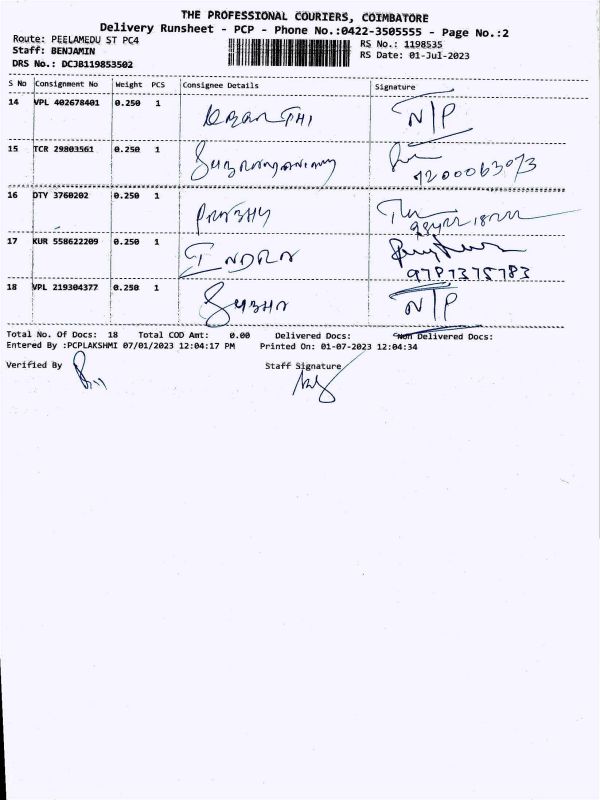 THE PROFESSIONAL COURIERS, COIMBATORE
Delivery Runsheet - PCP - Phone No.:0422-3505555 - Page No.:2
Route: PEELAMEDU ST PC4 RS No.: 1198535
Staff: BENJAMIN RS Date: 01-Jul-2023
DRS No.: DCJB119853502
S No Consignment No Weight PCS Consignee Details Signature
14 VPL 402678401 0.250 1 N/P
15 TCR 29803561 0.250 1 7200063073
16 DTY 3760202 0.250 1 PRABHU
17 KUR 558622209 0.250 1 INDRA
9787375783
18 VPL 219304377 0.250 1 SUBHA N/P
Total No. Of Docs: 18 Total COD Amt: 0.00 Delivered Docs: Non Delivered Docs:
Entered By :PCPLAKSHMI 07/01/2023 12:04:17 PM Printed On: 01-07-2023 12:04:34
Verified By Staff Signature